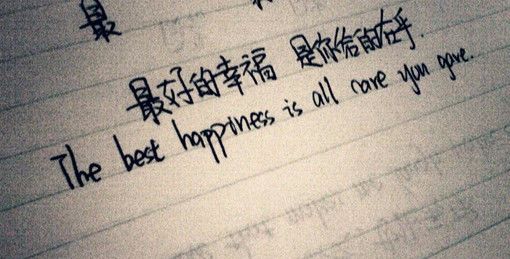 最
最好的幸福 是你给的在乎.
The best happiness is all care you gave.